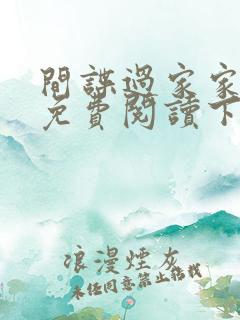 間諜過家家
免費閱讀下
浪漫煙灰
未經同意禁止轉載